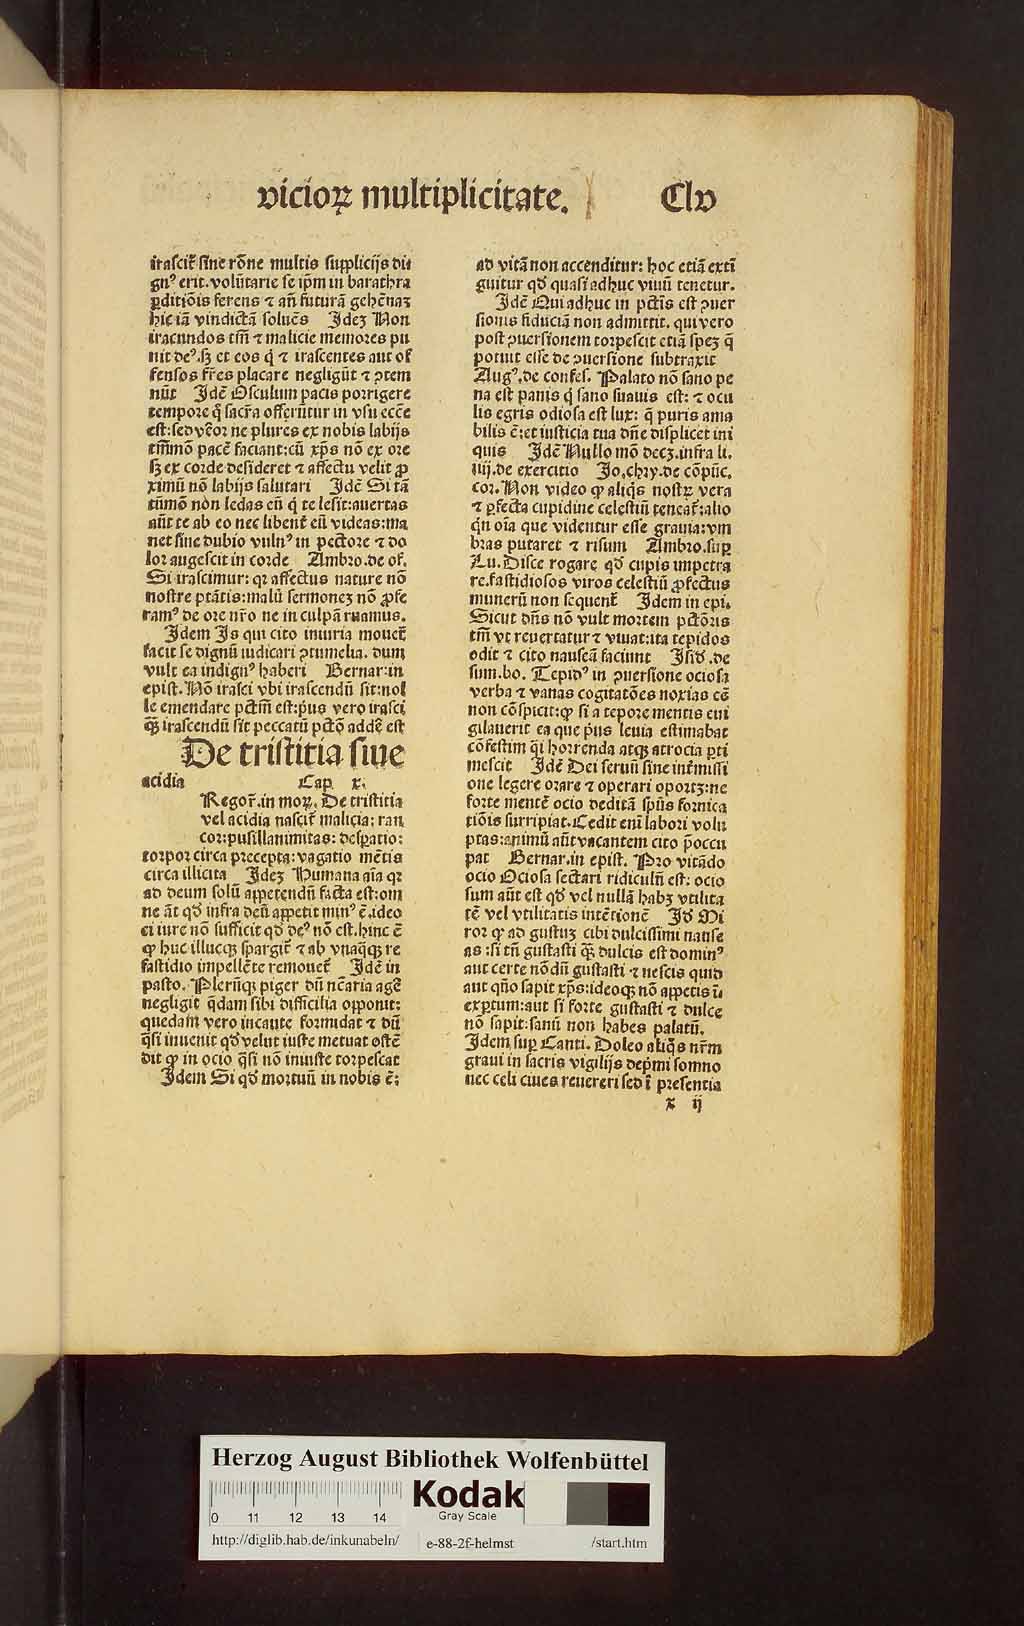 vicioꝝ multiplicitate. Clv
irascit̃ sine rõne multis supplicijs di
gnꝰ erit. volũtarie se ip̃m in barathra
ꝑditiõis ferens ⁊ añ futurã gehẽnaꝫ
hic iã vindictã soluẽs Ideꝫ Non
iracundos tm̃ ⁊ malicie memores pu
nit deꝰ. sꝫ et eos q̃ ⁊ irascentes aut of
fensos fr̃es placare negligũt ⁊ ꝯtem
nũt Idẽ Osculum pacis porrigere
tempore q̃ sacr̃a offerũtur in vsu eccẽ
est: sed vẽor ne plures ex nobis labijs
tm̃mõ pacẽ faciant: cũ xp̃s nõ ex ore
sꝫ ex corde desideret ⁊ affectu velit ꝓ
ximũ nõ labijs salutari Idẽ Si tã
tũmõ non ledas eũ q̃ te lesit: auertas
aũt te ab eo nec libent̃ eũ videas: ma
net sine dubio vulnꝰ in pectore ⁊ do
lor augescit in corde Ambro. de of.
Si irascimur: qꝛ affectus nature nõ
nostre ptãtis: malũ sermoneꝫ nõ ꝓfe
ramꝰ de ore nr̃o ne in culpã ruamus.
Idem Is qui cito iniuria mouet̃
facit se dignũ iudicari ꝯtumelia. dum
vult ea indignꝰ haberi Bernar: in
epist. Nõ irasci vbi irascendũ sit: nol
le emendare pctm̃ est: p̃us vero irasci
ꝙ̃ irascendũ sit peccatũ pctõ addẽ est
De tristitia siue
acidia Cap. x.
Regor̃. in moꝝ. De tristitia
vel acidia nascit̃ malicia: ran
cor: pusillanimitas: desꝑatio:
torpor circa precepta: vagatio mẽtis
circa illicita Ideꝫ Humana aĩa qꝛ
ad deum solũ appetendũ facta est: om
ne ãt qð infra deũ appetit minꝰ ẽ. ideo
ei iure nõ sufficit qð deꝰ nõ est. hinc ẽ
ꝙ huc illucqꝫ spargit̃ ⁊ ab vnaq̃qꝫ re
fastidio impellẽte remouet̃ Idẽ in
pasto. Plerũqꝫ piger dũ nc̃aria agẽ
negligit q̃dam sibi difficilia opponit:
quedam vero incaute formidat ⁊ dũ
q̃si inuenit qð velut iuste metuat ostẽ
dit ꝙ in ocio q̃si nõ iniuste torpescat
Idem Si qð mortuũ in nobis ẽ:
ad vitã non accenditur: hoc etiã exti
guitur qð quasi adhuc viuũ tenetur.
Idẽ Qui adhuc in pctĩs est ꝯuer
sionis fiduciã non admittit. qui vero
post ꝯuersionem torpescit etiã speꝫ q̃
potuit esse de ꝯuersione subtraxit
Augꝰ. de confes. Palato nõ sano pe
na est panis q̃ sano suauis est: ⁊ ocu
lis egris odiosa est lux: q̃ puris ama
bilis ẽ: et iusticia tua dñe displicet ini
quis Idẽ Nullo mõ deeꝫ. infra li.
iiij. de exercitio Jo. chry. de cõpũc.
cor. Non video ꝙ aliq̃s nostꝝ vera
⁊ ꝑfecta cupidine celestiũ teneat̃: alio
q̃n oĩa que videntur esse grauia: vm
bras putaret ⁊ risum Ambro. suꝑ
Lu. Disce rogare qð cupis impetra
re. fastidiosos viros celestiũ ꝓfectus
munerũ non sequent̃ Idem in epi.
Sicut dñs nõ vult mortem pctõris
tm̃ vt reuertatur ⁊ viuat: ita tepidos
odit ⁊ cito nauseã faciunt Isið. de
sum. bo. Tepidꝰ in ꝯuersione ociosa
verba ⁊ vanas cogitatões noxias eẽ
non cõspicit: ꝙ si a tepore mentis eui
gilauerit ea que p̃us leuia estimabat
cõfestim q̃i horrenda atqꝫ atrocia ꝑti
mescit Idẽ Dei seruũ sine intr̃missi
one legere orare ⁊ operari oportꝫ: ne
forte mentẽ ocio deditã sp̃us fornica
tiõis surripiat. Cedit enĩ labori volu
ptas: animũ aũt vacantem cito p̃occu
pat Bernar. in epist. Pro vitãdo
ocio Ociosa sectari ridiculũ est: ocio
sum aũt est qð vel nullã habꝫ vtilita
tẽ vel vtilitatis intẽtionẽ Ið Mi
ror ꝙ ad gustuꝫ cibi dulcissimi nause
as: si tñ gustasti ꝙ̃ dulcis est dominꝰ
aut certe nõdũ gustasti ⁊ nescis quid
aut qño sapit xp̃s: ideoqꝫ nõ appetis ĩ
exꝑtum: aut si forte gustasti ⁊ dulce
nõ sapit: sanũ non habes palatũ.
Idem suꝑ Canti. Doleo aliq̃s nr̃m
graui in sacris vigilijs dep̃mi somno
nec celi ciues reuereri sed ĩ presentia
x ij
Herzog August Bibliothek Wolfenbüttel
0 11 12 13 14
Kodak
Gray Scale
http://diglib.hab.de/inkunabeln/ e-88-2f-helmst /start.htm